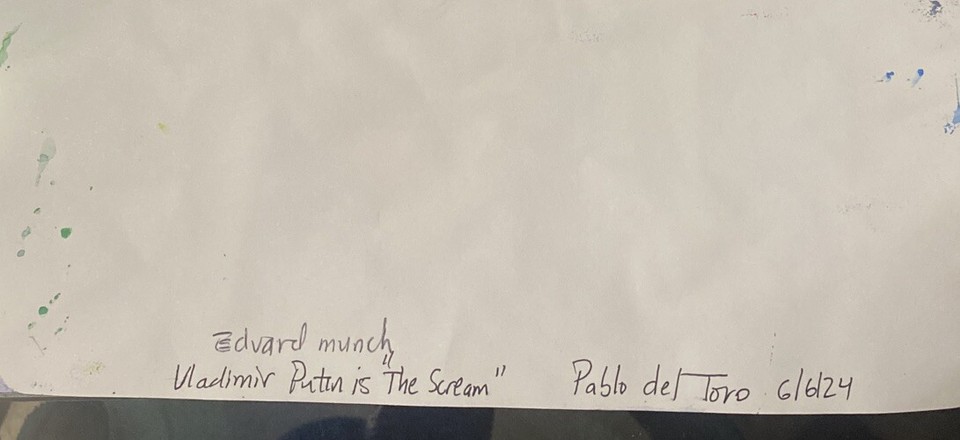 Edvard munch
Vladimir Putin is "The Scream" Pablo del Toro 6/6/24